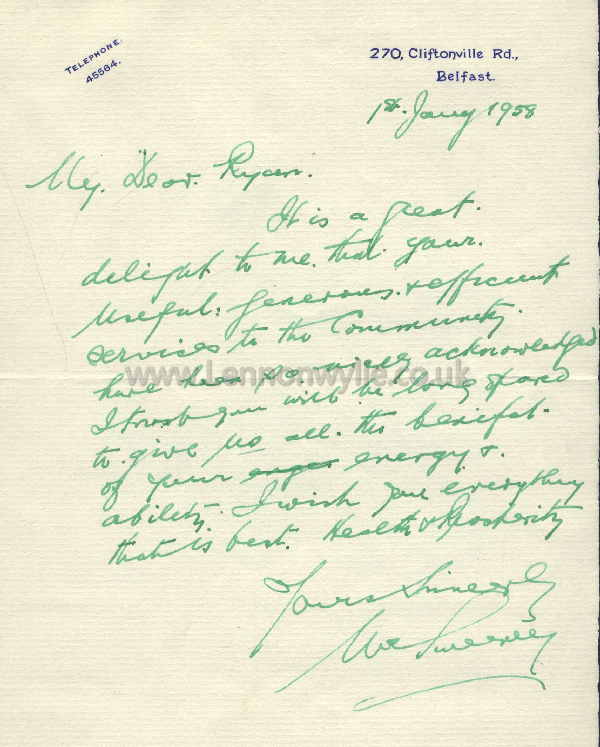 TELEPHONE.
45584.
270, Cliftonville Rd.,
Belfast.
1st. Jany 1958
My. Dear. Ryan.
It is a great.
delight to me. that your.
useful. generous. & efficient
services to the Community.
have been so. acknowledged
www.Lennonwylie.co.uk
I trust you will be long spared
to. give us all. the benifit.
of your energy &.
ability. I wish you everything
that is best. Health & Prosperity
Yours Sincerely